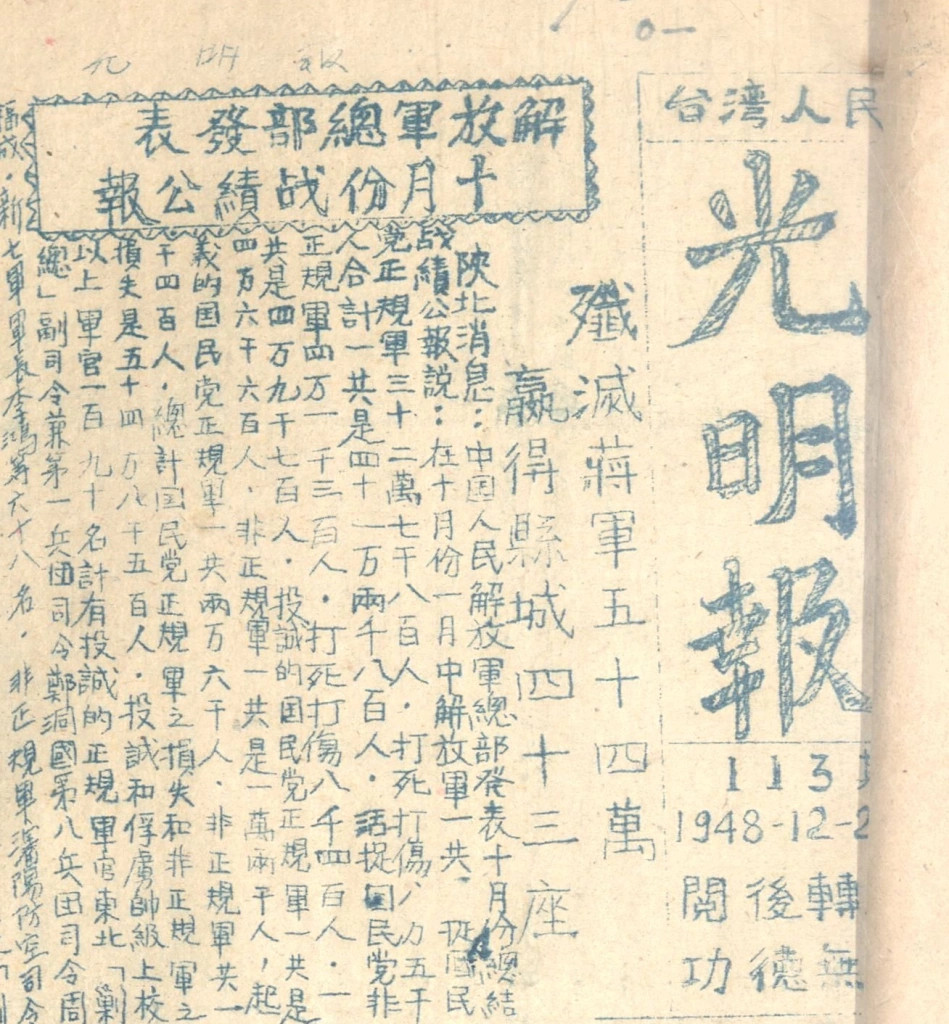 光明報
台湾人民
光明報
113
1948-12-2
閲後轉
功德無
解放軍總部發表
十月份战績公報
殲滅蔣軍五十四萬
贏得縣城四十三座
陝北消息：中国人民解放軍總部發表十月份總結
战績公報說：在十月份一月中解放軍一共 国民
党正規軍三十二萬七千八百人．打死打傷 万五千
人合計一共是四十一万兩千八百人．活捉国民党非
正規軍四万一千三百人．打死打傷八千四百人．一
共是四万九千七百人．投誠的国民党正規軍一共是
四万六千六百人．非正規軍一共是一萬兩千人，起
義的国民党正規軍一共兩万六千人．非正規軍共一
千四百人．總計国民党正規軍之損失和非正規軍之
損失是五十四万八千五百人．投誠和俘虜帥級上校
以上軍官一百九十名計有投誠的正規軍官東北「剿
總」副司令兼第一兵団司令鄭洞國第八兵団司令周
福成．新七軍軍長李鴻等六十八名．非正規軍瀋陽防空司令